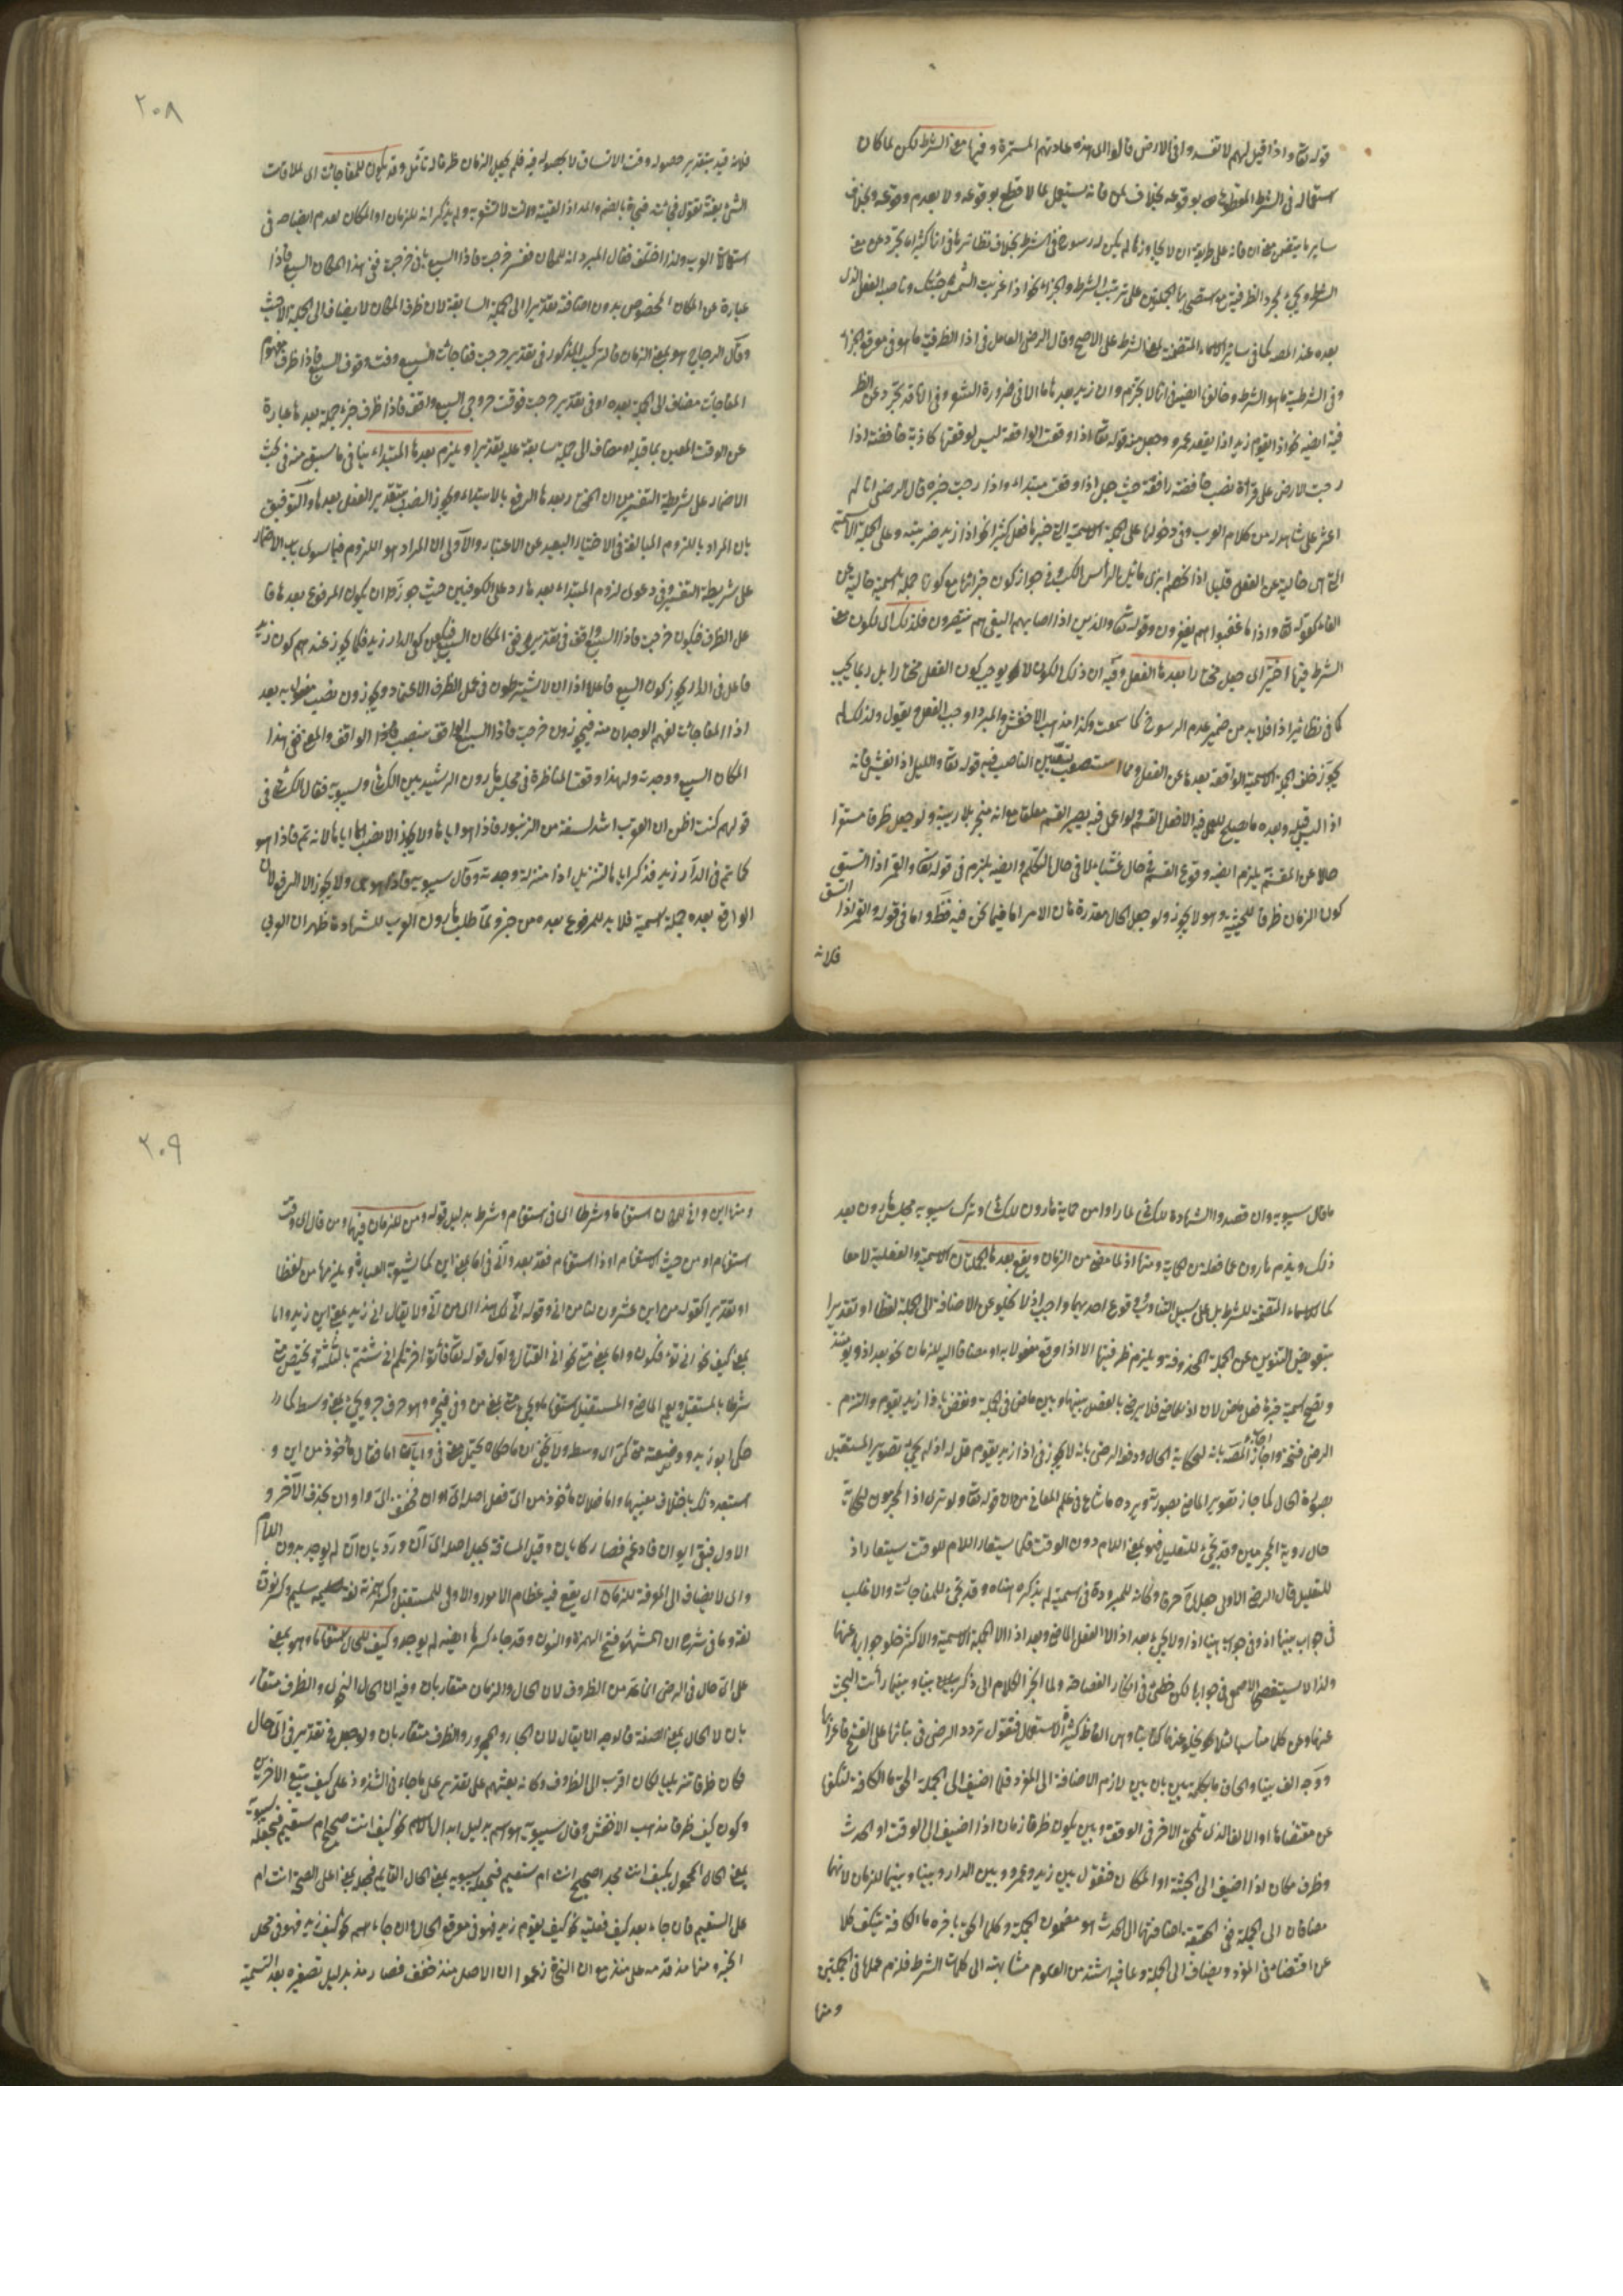 قوله تعا واذا قيل لهم لا تفسدوا فى الارض قالوا اى هذه عادتهم المستمرة وفيها معنى الشرط لكن لما كان
استعماله فى الشرط المقطوع بوقوعه بخلاف فانه يستعمل لما لا قطع بوقوعه ولا بعدم وقوعه وبخلاف
ساير ما يتضمن معنى ان فانه على طريقة ان لا يجاوزها لم يكن له رسوخ فى الشرط بخلاف نظائرها فى انها كثيرا ما يتجرد عن معنى
الشرط ويجئ لمجرد الظرفية على ترتيب الشرط والجزاء نحو اذا غربت الشمس جئتك وناصبه الفعل الذى
بعده عند المصه كما فى ساير الاسماء المتضمنة لمعنى الشرط على الاصح وقال الرضى العامل فى اذا الظرفية ما هو فى موقع الجزاء
وفى الشرطية ما هو الشرط وخالفها ايضه فى انها لا تجزم وان زيد بعدها ما الا فى ضرورة الشعر وفى انها قد تجرد عن الظر
فية ايضه نحو اذا يقوم زيد اذا يقعد عمرو وجعل منه قوله تعا اذا وقعت الواقعة ليس لوقعتها كاذبة خافضة اذا
رجت الارض على قرأة نصب خافضة رافعة حيث جعل اذا وقعت مبتداء واذا رجت خبره قال الرضى انا لم
اعثر على شاهد له من كلام العرب وفى دخولها على الجملة الاسمية التى خبرها فعل كثيرا نحو اذا زيد ضربته وعلى الجملة الاسمية
خالية عن الفعل قليل اذا الخصم ابزى مائل الرأس انكب وفى جواز كون جزائها مع كونها جملة اسمية خالية عن
الفاء كقوله تعا واذا ما غضبوا هم يغفرون وقوله تعا والذين اذا اصابهم البغى هم ينتصرون فلذلك اى لكون معنى
الشرط فيها اختير اى جعل مختارا بعدها الفعل وفيه ان ذلك الكون لا يوجب كون الفعل مختارا بل ربما يجب
كما فى نظائر اذا فلا بد من ضم عدم الرسوخ كما سمعت وكذا مذهب الاخفش والمبرد اوجب الفعل ويقول ولذلك لم
يجوز خلف الجملة الاسمية الواقعة بعدها عن الفعل ومما استصعب تعيين الناصب فيه قوله تعا والليل اذا يغشى فانه
اذا ليس قبله وبعده ما يصلح للعمل فيه الا فعل القسم ولو اعمل فيه يصير القسم معلقا مع انه منجز بلا ريبة ولو جعل ظرفا مستقرا
حالا عن المقسم به يلزم ايضه وقوع القسم فى حال غشيانه لا فى حال التكلم وايضه يلزم فى قوله تعا والقمر اذا اتسق
كون الزمان ظرفا للجثة وهو لا يجوز ولو جعل الحال مقدرة هان الامر اما فيما نحن فيه فقط واما فى قوله والقمر اذا اتسق
فلانه
٢٠٨
فلانه قيد بتقدير حصوله وقت الاتساق لا بحصوله فيه فلم يجعل الزمان ظرفا له تأمل وقد يكون للمفاجات اى ملاقات
الشئ بغتة تقول فجئت فجاءة بالضم والمد اذا لقيته وانت لا تشعر به ولم يذكر انه للزمان او المكان لعدم ايضاحه فى
استعمال العرب ولذا اختلف فقال المبرد انه للمكان ففسر خرجت فاذا السبع بانى خرجت ففى هذا المكان السبع فاذا
عبارة عن المكان المخصوص بدون اضافة تقديرا الى الجملة السابقة لان ظرف المكان لا يضاف الى الجملة الا حيث
وقال الزجاج هو بمعنى الزمان فالتركيب المذكور فى تقدير خرجت ففاجأت السبع وقت وقوف السبع فاذا ظرف مفعول
المفاجات مضاف الى الجملة بعده او فى تقدير خرجت فوقت خروجى السبع واقف فاذا ظرف خبر جملة بعدها عبارة
عن الوقت المعين بما قبله او مضاف الى جملة سابقة عليه تقديرا ويلزم بعدها المبتداء ينافى ما سبق منه فى بحث
الاضمار على شريطة التفسير من ان المختار بعدها الرفع بالابتداء ويجوز النصب بتقدير الفعل بعدها والتوفيق
بان المراد باللزوم المبالغة فى الاختيار البعيد عن الاعتبار والاولى ان المراد هو اللزوم فيما سوى باب الاضمار
على شريطة التفسير وفى دعوى لزوم المبتداء بعدها رد على الكوفيين حيث جوزوا ان يكون المرفوع بعدها فا
عل الظرف فيكون خرجت فاذا السبع واقف فى تقدير ففى المكان السبع كفى الدار زيد فكما يجوز عندهم كون زيد
فاعل فى الدار يجوز كون السبع فاعل اذا لان لا يشترطون فى عمل الظرف الاعتماد ويجوزون نصب مفعولا به بعد
اذا المفاجات لفهم الوجدان منه فيجوزون خرجت فاذا السبع الواقف بنصب الواقف والمعنى ففى هذا
المكان السبع ووجدته ولهذا وقعت المناظرة فى مجلس هارون الرشيد بين الكسائى وسيبويه فقال الكسائى فى
قولهم كنت اظن ان العقرب اشد لسعة من الزنبور فاذا هو اياها ولا يجوز الا نصب اياها لانه تم فاذا هو
كما تم فى الدار زيد فذكر اياها لتنزيل اذا منزلة وجدت وقال سيبويه فاذا هو هى ولا يجوز الا الرفع لان
الواقع بعده جملة اسمية فلا بد للمرفوع بعده من خبر ولما طلب هارون العرب للشهادة ظهر ان العربى
ما قال سيبويه وان قصدوا الشهادة للكسائى لما راوا من حماية هارون للكسائى وترك سيبويه مجلس هارون بعد
ذلك ويذم هارون بما فعله من الحماية ومنها اذ لما مضى من الزمان ويقع بعدها الجملتان الاسمية والفعلية لا معا
كما الاسماء المتضمنة للشرط بل على سبيل التناوب ووقوع احديهما واجب اذ لا يخلو عن الاضافة الى الجملة لفظا او تقديرا
بتعويض التنوين عن الجملة المحذوفة ويلزم ظرفيتها الا اذا وقع مفعولا به او مضافا اليه للزمان نحو بعد اذ ويومئذ
وتقبح اسمية خبرها فعل ماض لان اذ للماضى فلا يرضى بالفصل بينها وبين ماض فى الجملة ونقض باذا زيد يقوم والتزم
الرضى قبحه واجاب المصه بانه لحكاية الحال ودفعه الرضى بانه لا يجوز فى اذا زيد يقوم قل له اذ لم يجئ تصوير المستقبل
بصورة الحال كما جاز تصوير الماضى بصورته ويرده ما شاع فى علم المعانى من ان قوله تعا ولو ترى اذ المجرمون لحكاية
حال رؤية المجرمين وقد يجئ للتعليل فهو بمعنى اللام دون الوقت فكما يستعار اللام للوقت يستعار اذ
للتعليل قال الرضى الاولى جعلها حرفا وكانه للمبرد ودة فى اسمية لم يذكره معناه وقد يجئ للمفاجات والاغلب
فى جواب بينما اذ وفى جواب بينا اذا ولا يجئ بعد اذ الا الفعل الماضى وبعد اذا الا الجملة الاسمية والاكثر خلو جوابهما عنها
ولذا لا يستفصح الاصمعى فى جوابها لكن خطئ فى انكار الفصاحة ولما انجر الكلام الى ذكر بينا وبينما رأيت البحث
عنهما وعن كلما مناسبا لئلا يخلو عنها كتابنا وهى الفاظ كثيرة الاستعمال فنقول تردد الرضى فى بنائها على الفتح واعرابها
ووجه الف بينا والحاق ما بكلمة بين بان بين لازم الاضافة الى المفرد فلما اضيف الى الجملة الحق ما الكافة لتكفها
عن مقتضاها او الالف الذى تلحق الاخر فى الوقف وبين يكون ظرف زمان اذا اضيف الى الوقت او الحدث
وظرف مكان اذا اضيف الى الجثة او المكان فتقول بين زيد وعمرو وبين الدار وبينا وبينما للزمان لانهما
مضافان الى الجملة ففى الحقيقة اضافتهما الى الحدث هو مضمون الجملة وكلما الحق باخره ما الكافة ليكف كلا
عن اقتضائه المفرد ويضاف الى الجملة وما فيه اشتد من العموم مشابهته الى كلمات الشرط فلزم عملها فى الجملتين
ومنها
٢٠٩
ومنها اين وانى للمكان استفهاما وشرطا اى فى استفهام وشرط بدليل قوله ومتى للزمان فيهما ومن قال اى وقت
استفهام او من حيث الاستفهام او ذا استفهام فقد بعد وانى فى اما بمعنى اين كما يشعر به العبارة ويلزمها من لفظا
او تقديرا كقوله من اين عشرون لنا من انى وقوله انى لك هذا اى من انى ولا يقال انى زيد بمعنى اين زيد واما
بمعنى كيف نحو انى تؤفكون واما بمعنى متى نحو انى القتال واول قوله تعا فأتوا حرثكم انى شئتم بالثلثة ويختص متى
شرطا بالمستقبل ويعم الماضى والمستقبل استفهاما ويجئ متى بمعنى من وفى فيجر وهو حرف جر ويجئ بمعنى وسط كما
حكى ابو زيد وضعته متى كمى اى وسطه ولا يخفى ان ما حكاه يحتمل معنى فى وايان اما فعال مأخوذ من اين و
استبعد ذلك باختلاف معنييهما واما فعلان مأخوذ من اى فعل اصله اى اوان فخفف اى واوان بحذف الآخر و
الاول فبقى ايوان فادغم فصار كايان وقيل المسافة بجعل اصله اى آن ورد بان آن لم يوجد بدون اللام
واى لا يضاف الى المعرفة للزمان اى يقع فيه عظام الامور والاولى للمستقبل وكسر همزته لغة سليم وكسر نونه
لغة وما فى شرحه ان المشهور فتح الهمزة والنون وقد جاء كسرها ايضه لم يوجد وكيف للحال استفهاما وهو بمعنى
على اى حال فى الرضى انما عد من الظروف لان الحال والزمان متقاربان وفيه ان الحال والظرف متقار
بان لا الحال بمعنى الصفة فالوجه ان يقال لان الجار والمجرور والظرف متقاربان ولو جعل فى تقدير فى اى حال
فكان ظرفا تنزيليا لكان اقرب الى الظروف وكانه بعثهم على تقدير على ما جاء فى الشذوذ على كيف تبيع الاحمرين
وكون كيف ظرفا مذهب الاخفش وقال سيبويه هو اسم بدليل ابدال الاسم نحو كيف انت صحيح ام سقيم فيجعله سيبويه
بمعنى الحال المحمول بكيف انت مجرد اصحيح انت ام سقيم فيجعله سيبويه بمعنى الحال القائم فيجعله بمعنى اعلى الصحة انت ام
على السقيم فان جاء بعد كيف فعلية نحو كيف يقوم زيد فهو فى موقع الحال وان جاء اسم نحو كيف زيد فهو فى محل
الخبر ومنها مذ قدمه على منذ مع ان النحاة زعموا ان الاصل منذ فخفف فصار مذ بدليل تصغيره بعد التسمية